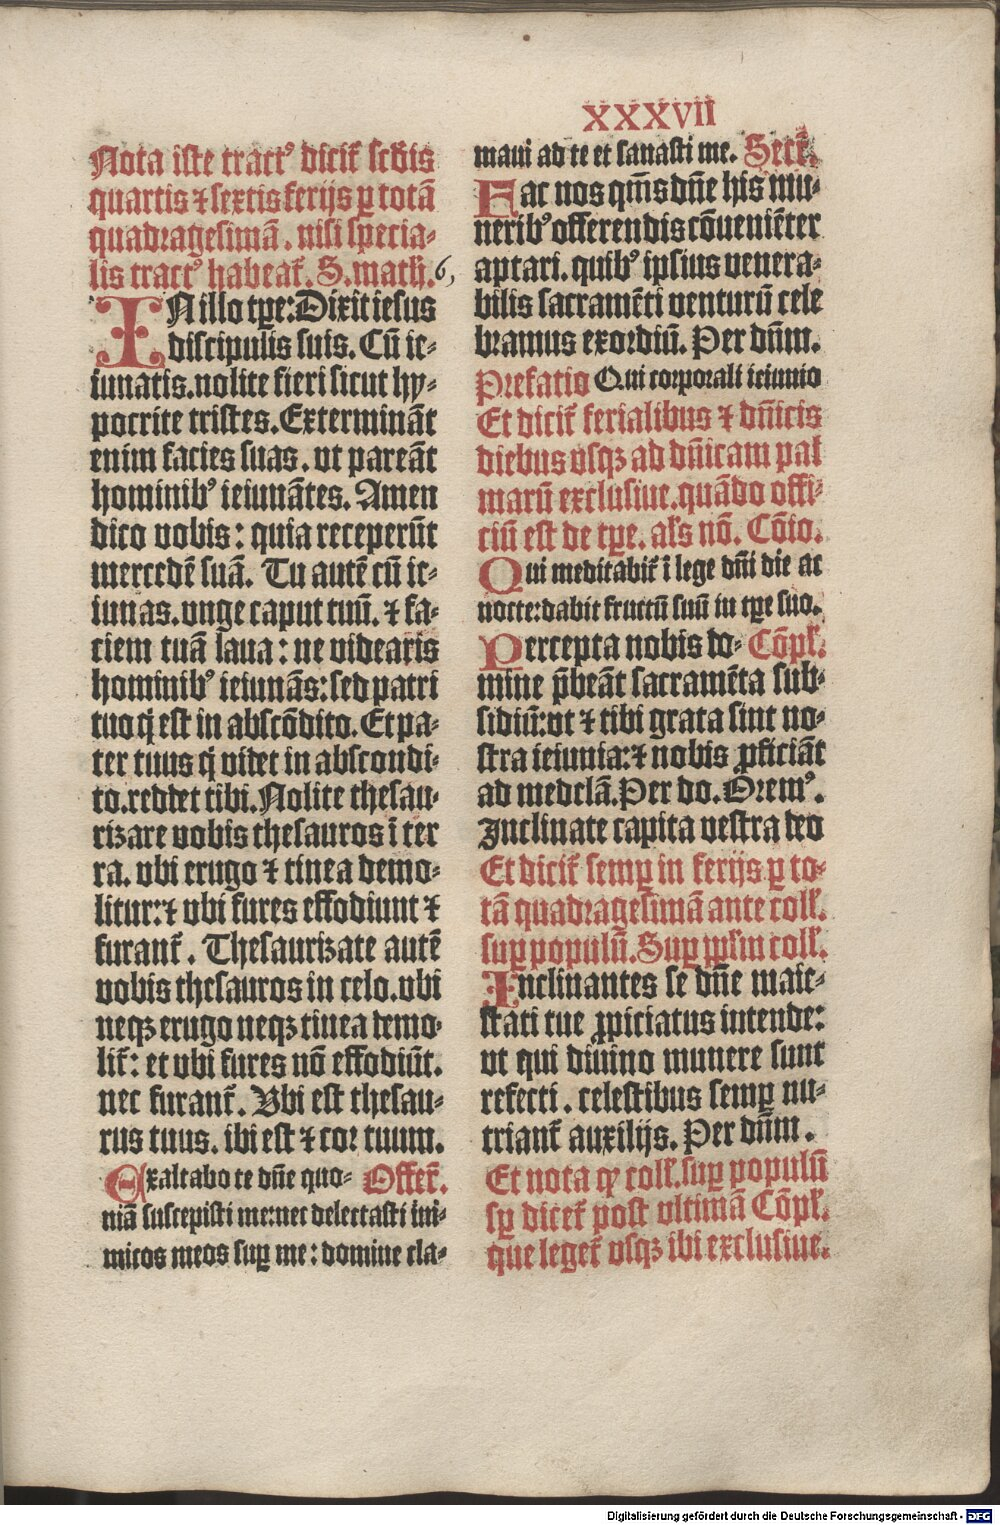 XXXVII
Nota iste tractꝰ dicit̃ scd̃is
quartis ⁊ sextis ferijs ꝑ totã
quadragesimã. nisi specia⸗
lis tractꝰ habeat̃. S. math̃. 6,
IN illo tꝑe: Dixit iesus
discipulis suis. Cũ ie⸗
iunatis. nolite fieri sicut hy⸗
pocrite tristes. Exterminãt
enim facies suas. vt pareãt
hominibꝰ ieiunãtes. Amen
dico vobis: quia receperũt
mercedẽ suã. Tu autẽ cũ ie⸗
iunas. vnge caput tuũ. ⁊ fa⸗
ciem tuã laua: ne videaris
hominibꝰ ieiunãs: sed patri
tuo q̇ est in abscõdito. Et pa⸗
ter tuus q̇ videt in abscondi⸗
to. reddet tibi. Nolite thesau⸗
rizare vobis thesauros ĩ ter
ra. vbi erugo ⁊ tinea demo⸗
litur: ⁊ vbi fures effodiunt ⁊
furant̃. Thesaurizate autẽ
vobis thesauros in celo. vbi
neqꝫ erugo neqꝫ tinea demo⸗
lit̃: et vbi fures nõ effodiũt.
nec furant̃. Vbi est thesau⸗
rus tuus. ibi est ⁊ cor tuum.
Exaltabo te dñe quo⸗ Offer̃.
niã suscepisti me: nec delectasti ini⸗
micos meos suꝑ me: domine cla⸗
maui ad te et sanasti me. Secr̃.
Fac nos qm̃s dñe his mu⸗
neribꝰ offerendis cõueniẽter
aptari. quibꝰ ipsius venera⸗
bilis sacramẽti venturũ cele
bramus exordiũ. Per dñm.
Prefatio Qui corporali ieiunio
Et dicit̃ ferialibus ⁊ dñicis
diebus vsqꝫ ad dñicam pal
marũ exclusiue. quãdo offi⸗
ciũ est de tꝑe. als̃ nõ. Cõio.
Qui meditabit̃ ĩ lege dñi die ac
nocte: dabit fructũ suũ in tꝑe suo.
Percepta nobis do⸗ Cõpł.
mine p̃beãt sacramẽta sub⸗
sidiũ: vt ⁊ tibi grata sint no⸗
stra ieiunia: ⁊ nobis ꝓficiãt
ad medelã. Per do. Oremꝰ.
Inclinate capita vestra deo
Et dicit̃ semꝑ in ferijs ꝑ to⸗
tã quadragesimã ante coll̃.
suꝑ populũ. Suꝑ pp̃lm coll̃.
Inclinantes se dñe maie⸗
stati tue ꝓpiciatus intende:
vt qui diuino munere sunt
refecti. celestibus semꝑ nu⸗
triant̃ auxilijs. Per dñm.
Et nota ꝙ coll̃. suꝑ populũ
sꝑ dicet̃ post vltimã Cõpł.
que leget̃ vsqꝫ ibi exclusiue.
Digitalisierung gefördert durch die Deutsche Forschungsgemeinschaft - DFG